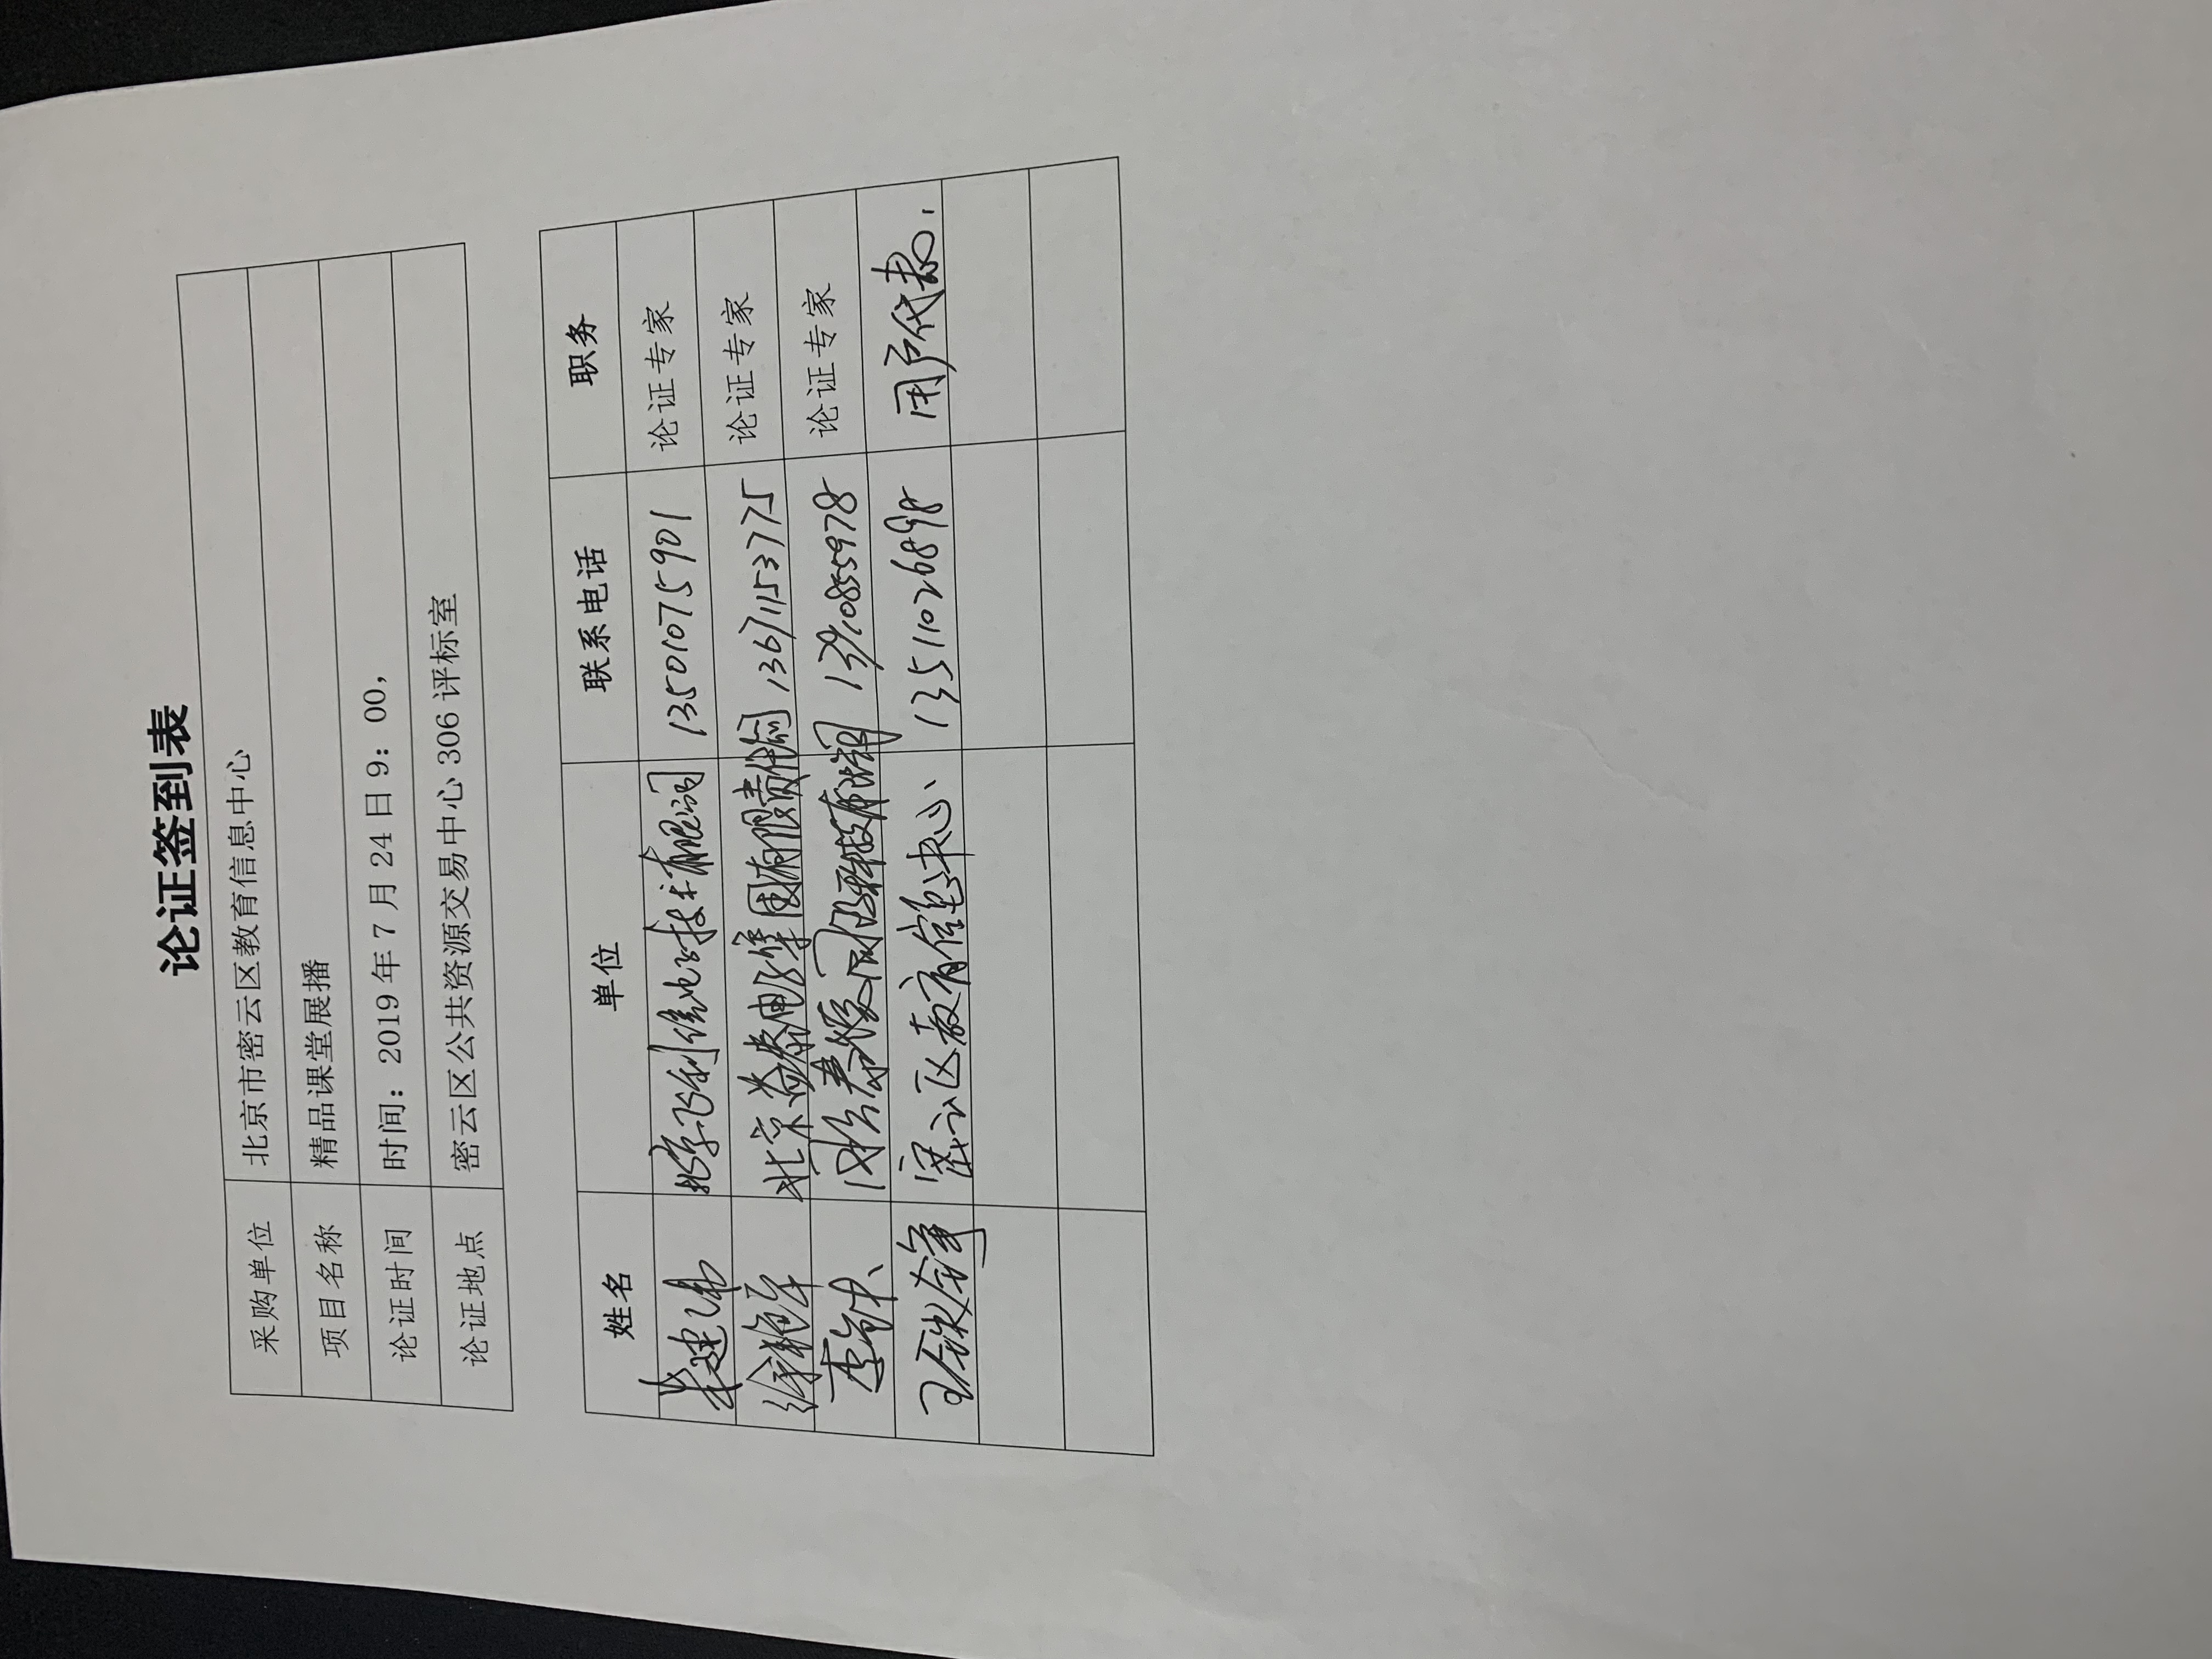 论证签到表
采购单位 北京市密云区教育信息中心
项目名称 精品课堂展播
论证时间 时间：2019年7月24日9：00，
论证地点 密云区公共资源交易中心306评标室
姓名 单位 联系电话 职务
建伟 技术有限公司 13501075901 论证专家
徐艳 北京 电缆 有限责任公司 13671153775 论证专家
李 科技有限公司 13910855978 论证专家
王 锋 密云区教育信息中心、 13511026898 用户代表.